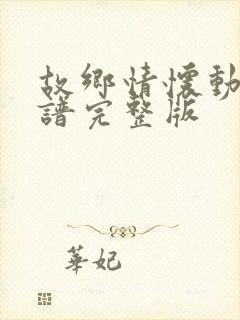 故鄉情懷動
譜完整版
華妃